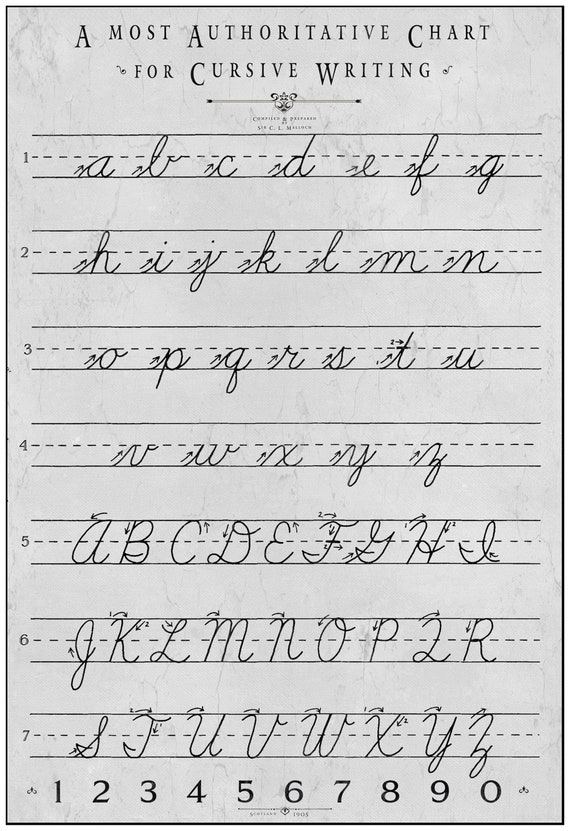 A MOST AUTHORITATIVE CHART
FOR CURSIVE WRITING
COMPILED & PREPARED
BY
SIR C. L. MALLOCH
1 a b c d e f g
2 h i j k l m n
3 o p q r s t u
4 v w x y z
5 A B C D E F G H I
6 J K L M N O P Q R
7 S T U V W X Y Z
1 2 3 4 5 6 7 8 9 0
SCOTLAND 1905